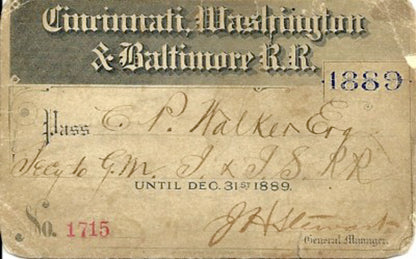 Cincinnati, Washington
& Baltimore R.R.
1889
Pass C P. Walker Esq
Secy to G.M. J. & I. S. RR
UNTIL DEC. 31ST 1889.
No. 1715
J H Stewart
General Manager.